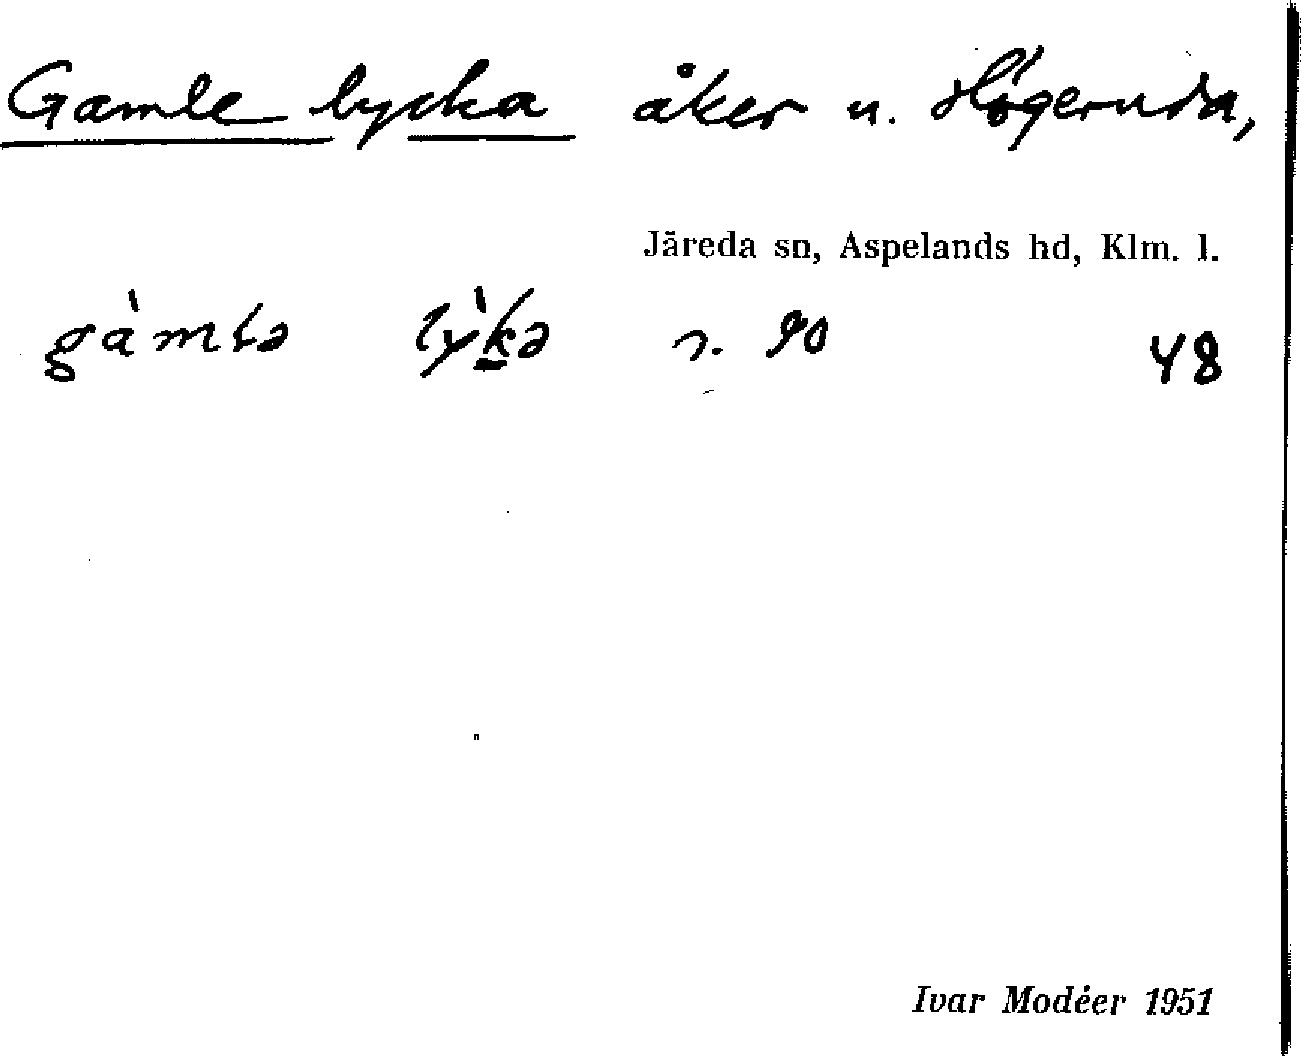 Gamle lycka åker u. Högeruda,
Järeda sn, Aspelands hd, Klm. l.
gàmlə lỳkə n. 90 48
Ivar Modéer 1951